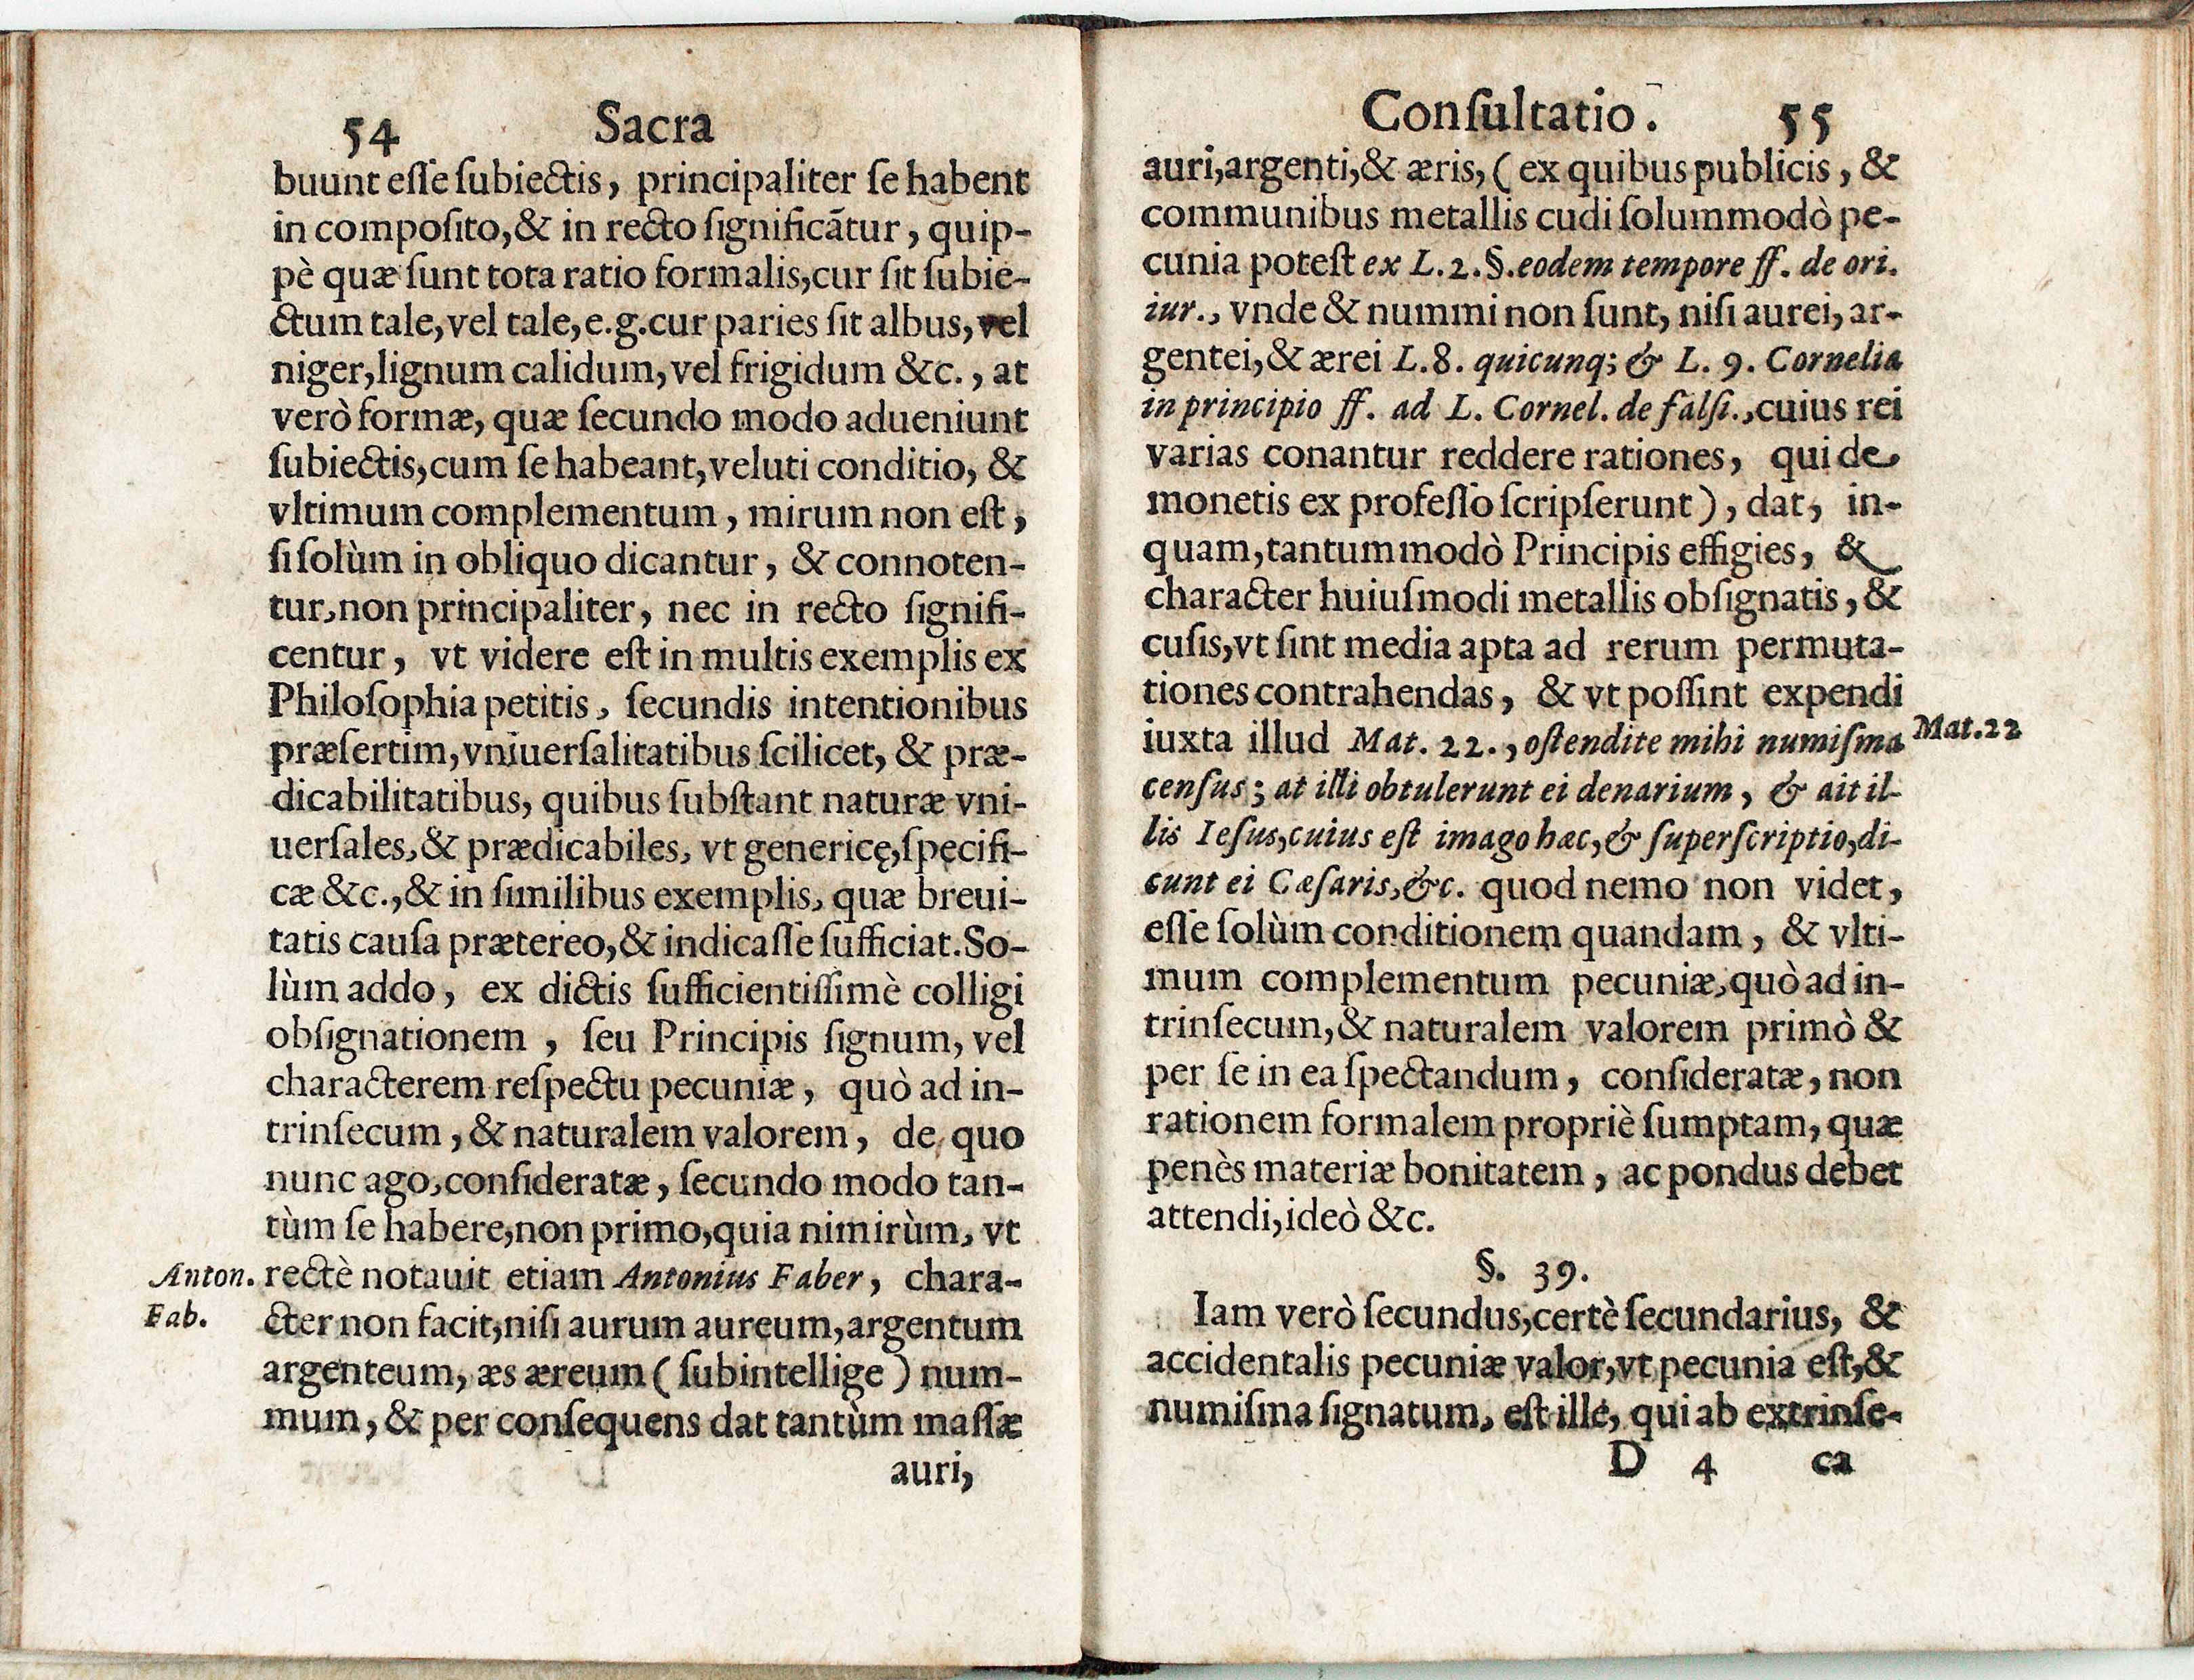 54 Sacra
buunt eſſe ſubiectis, principaliter ſe habent
in compoſito,& in recto ſignificãtur, quip-
pè quæ ſunt tota ratio formalis,cur ſit ſubie-
ctum tale,vel tale,e.g.cur paries ſit albus,vel
niger,lignum calidum,vel frigidum &c., at
verò formæ, quæ ſecundo modo adueniunt
ſubiectis,cum ſe habeant,veluti conditio, &
vltimum complementum, mirum non eſt,
ſi ſolùm in obliquo dicantur, & connoten-
tur,non principaliter, nec in recto ſignifi-
centur, vt videre eſt in multis exemplis ex
Philoſophia petitis, ſecundis intentionibus
præſertim,vniuerſalitatibus ſcilicet, & præ-
dicabilitatibus, quibus ſubſtant naturæ vni-
uerſales,& prædicabiles, vt genericę,ſpecifi-
cæ &c.,& in ſimilibus exemplis, quæ breui-
tatis cauſa prætereo,& indicaſſe ſufficiat.So-
lùm addo, ex dictis ſufficientiſſimè colligi
obſignationem, ſeu Principis ſignum, vel
characterem reſpectu pecuniæ, quò ad in-
trinſecum, & naturalem valorem, de quo
nunc ago,conſideratæ, ſecundo modo tan-
tùm ſe habere,non primo,quia nimirùm, vt
Anton. rectè notauit etiam Antonius Faber, chara-
Fab. cter non facit,niſi aurum aureum,argentum
argenteum, æs æreum (ſubintellige) num-
mum, & per conſequens dat tantùm maſſæ
auri,
Conſultatio. 55
auri,argenti,& æris, (ex quibus publicis, &
communibus metallis cudi ſolummodò pe-
cunia poteſt ex L.2.§.eodem tempore ff. de ori.
iur., vnde & nummi non ſunt, niſi aurei, ar-
gentei,& ærei L.8. quicunq; & L. 9. Cornelia
in principio ff. ad L. Cornel. de falſi.,cuius rei
varias conantur reddere rationes, qui de
monetis ex profeſſo ſcripſerunt), dat, in-
quam,tantummodò Principis effigies, &
character huiuſmodi metallis obſignatis, &
cuſis,vt ſint media apta ad rerum permuta-
tiones contrahendas, & vt poſſint expendi
iuxta illud Mat. 22., oſtendite mihi numiſma Mat.22
cenſus; at illi obtulerunt ei denarium, & ait il-
lis Ieſus,cuius eſt imago hæc,& ſuperſcriptio,di-
cunt ei Cæſaris,&c. quod nemo non videt,
eſſe ſolùm conditionem quandam, & vlti-
mum complementum pecuniæ,quò ad in-
trinſecum,& naturalem valorem primò &
per ſe in ea ſpectandum, conſideratæ, non
rationem formalem propriè ſumptam, quæ
penès materiæ bonitatem, ac pondus debet
attendi,ideò &c.
§. 39.
Iam verò ſecundus,certè ſecundarius, &
accidentalis pecuniæ valor,vt pecunia eſt,&
numiſma ſignatum, eſt ille, qui ab extrinſe-
D 4 ca